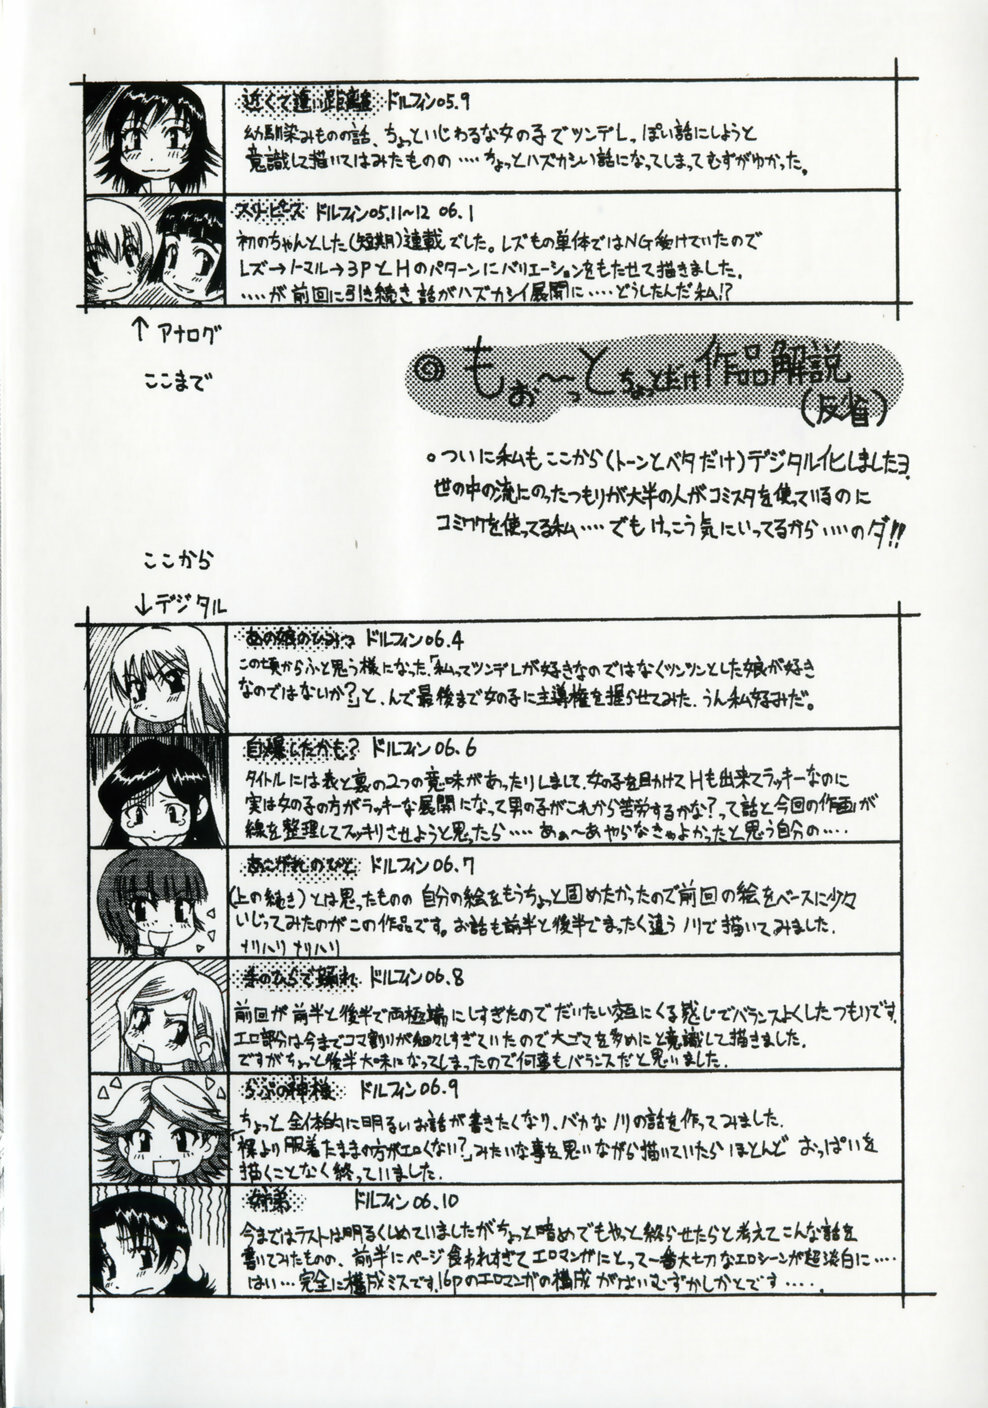 近くて遠い距離 ドルフィン05.9
幼馴染みものの話、ちょっといじわるな女の子でツンデレっぽい話にしようと
意識して描いてはみたものの‥‥ちょっとハズカシい話になってしまってむずがゆかった。
スリーピース ドルフィン05.11~12 06.1
初のちゃんとした(短期)連載でした。レズもの単体ではNG受けていたので
レズ→ノーマル→3PとHのパターンにバリエーションをもたせて描きました.
‥‥が前回に引き続き話がハズカシイ展開に‥‥どうしたんだ私!?
↑アナログ
ここまで
◎もぉ~~っとちょっとだけ作品解説
(反省)
。ついに私もここから(トーンとベタだけ)デジタル化しましたヨ.
世の中の流にのったつもりが大半の人がコミスタを使っているのに
コミワクを使ってる私‥‥でもけっこう気にいってるから‥‥のダ!!
ここから
↓デジタル
あの娘のひみつ ドルフィン06.4
この頃からふと思う様になった.「私ってツンデレが好きなのではなくツンツンとした娘が好き
なのではないか?」と、んで最後まで女の子に主導権を握らせてみた、うん私好みだ。
自爆したかも? ドルフィン06.6
タイトルには表と裏の2つの意味があったりしまして、女の子を見かけてHも出来てラッキーなのに
実は女の子の方がラッキーな展開になって男の子がこれから苦労するかな?って話と今回の作画が
線を整理してスッキリさせようと思ったら‥‥あぁ~あやらなきゃよかったと思う自分の‥‥
あこがれのひと ドルフィン06.7
(上の続き)とは思ったものの自分の絵をもうちょっと固めたかったので前回の絵をベースに少々
いじってみたのがこの作品です。お話も前半と後半でまったく違うノリで描いてみました.
メリハリメリハリ
手のひらで踊れ ドルフィン06.8
前回が前半と後半で両極端にしすぎたのでだいたい交互にくる感じでバランスよくしたつもりです.
エロ部分は今までコマ割りが細々しすぎていたので大ゴマを多めにと意識して描きました.
ですがちょっと後半大味になってしまったので何事もバランスだと思いました.
らぶの神様 ドルフィン06.9
ちょっと全体的に明るいお話が書きたくなり、バカなノリの話を作ってみました.
「裸より服着たままの方がエロくない?」みたいな事を思いながら描いていたらほとんどおっぱいを
描くことなく終っていました.
姉弟 ドルフィン06.10
今まではラストは明るくしめていましたがちょっと暗めでもやっと終らせたらと考えてこんな話を
書いてみたものの、前半にページ食われすぎてエロマンガにとって一番大切なエロシーンが超淡白に‥‥
はい‥完全に構成ミスです.16pのエロマンガの構成がばいむずかしかとです‥‥.